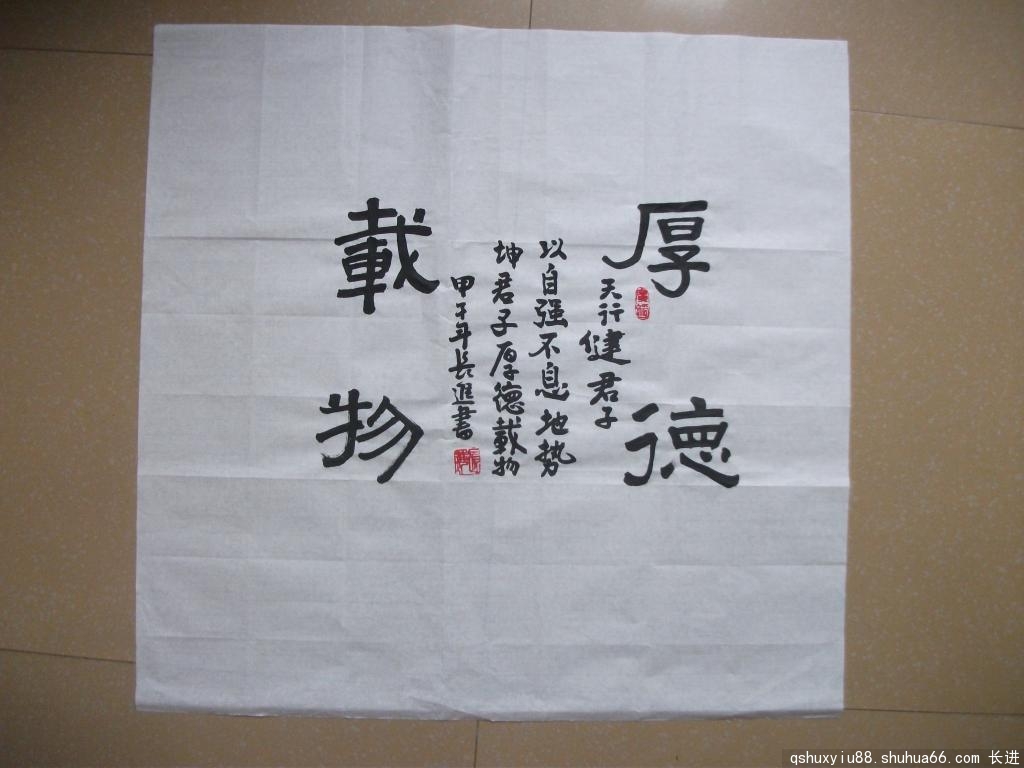 厚德
载物
天行健君子
以自强不息地势
坤君子厚德载物
甲午年长进書
qshuxyiu88.shuhua66.com 长进